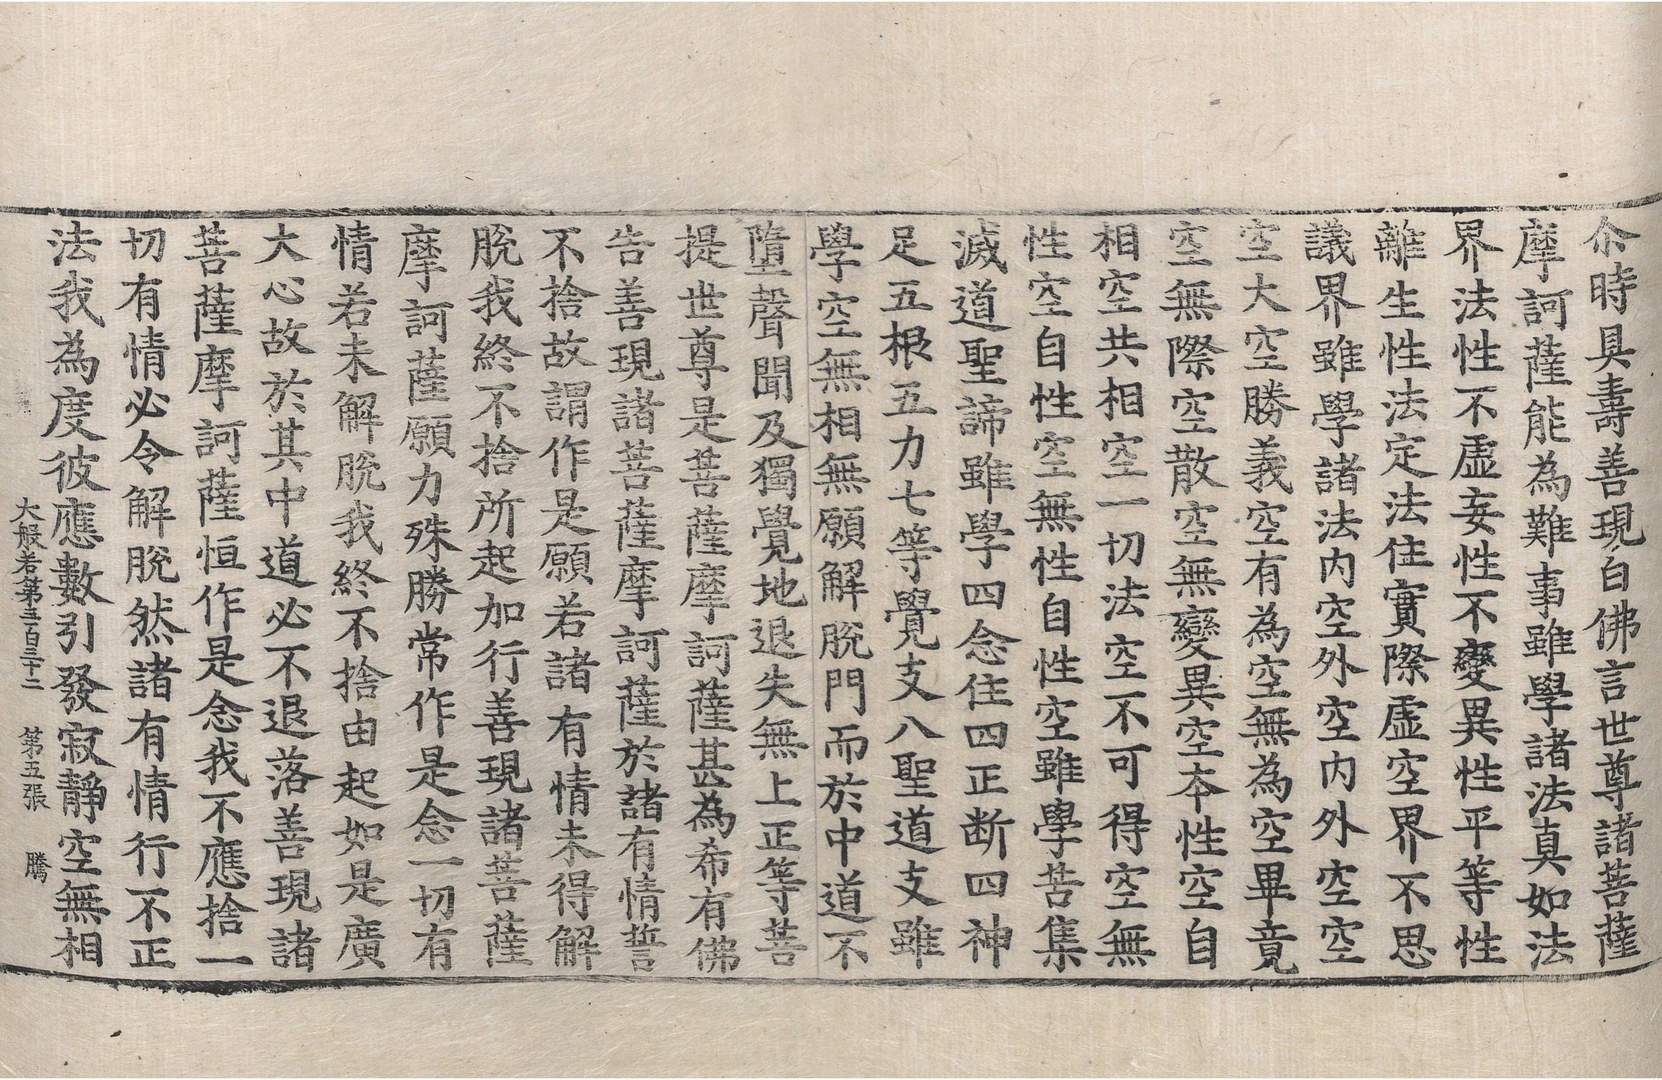 尒時具壽善現白佛言世尊諸菩薩
摩訶薩能為難事雖學諸法真如法
界法性不虛妄性不變異性平等性
離生性法定法住實際虛空界不思
議界雖學諸法內空外空內外空空
空大空勝義空有為空無為空畢竟
空無際空散空無變異空本性空自
相空共相空一切法空不可得空無
性空自性空無性自性空雖學苦集
滅道聖諦雖學四念住四正斷四神
足五根五力七等覺支八聖道支雖
學空無相無願解脫門而於中道不
墮聲聞及獨覺地退失無上正等菩
提世尊是菩薩摩訶薩甚為希有佛
告善現諸菩薩摩訶薩於諸有情誓
不捨故謂作是願若諸有情未得解
脫我終不捨所起加行善現諸菩薩
摩訶薩願力殊勝常作是念一切有
情若未解脫我終不捨由起如是廣
大心故於其中道必不退落善現諸
菩薩摩訶薩恒作是念我不應捨一
切有情必令解脫然諸有情行不正
法我為度彼應數引發寂靜空無相
大般若第三百三十二 第五張 騰